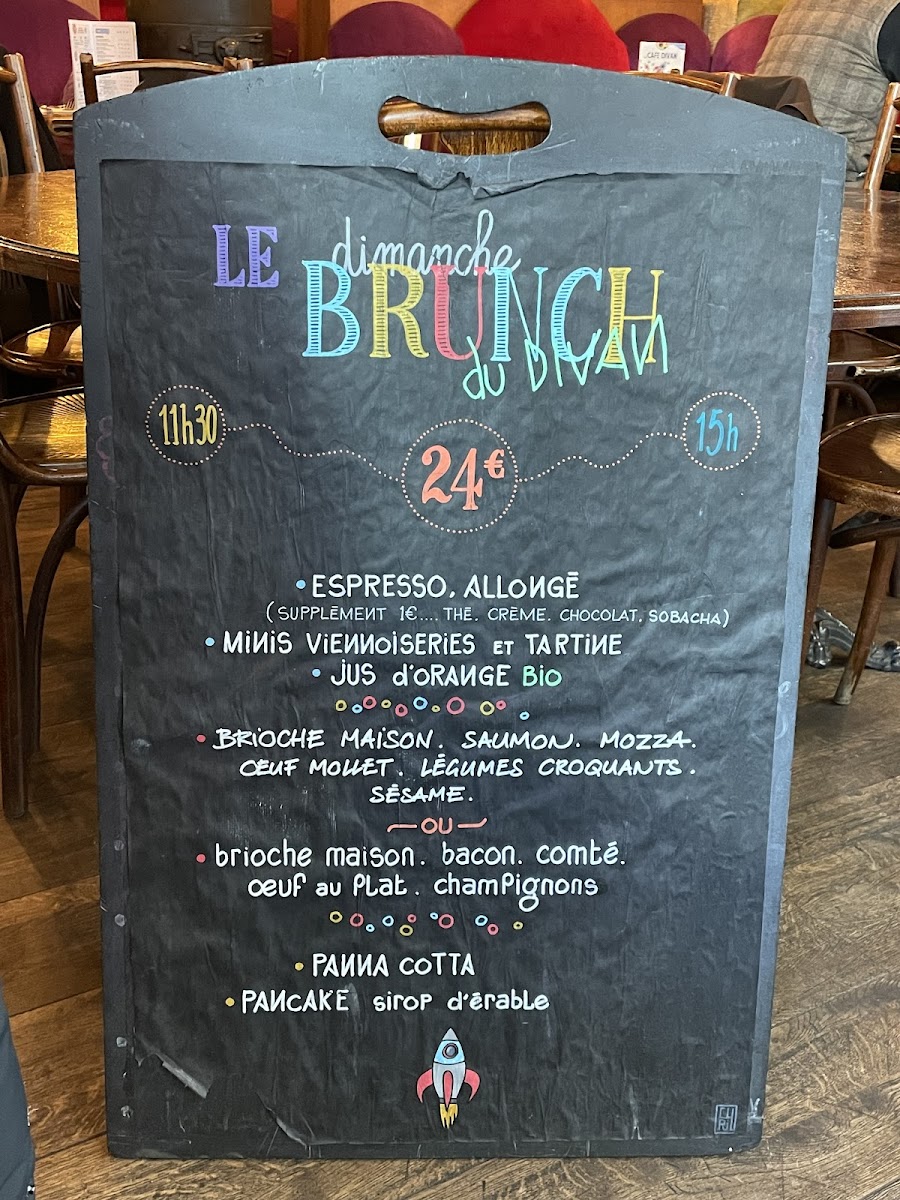 CAFE DIVAN
LE dimanche
BRUNCH
du DIVAN
11h30
24€
15h
• ESPRESSO, ALLONGÉ
(SUPPLÉMENT 1€.... THÉ. CRÈME. CHOCOLAT. SOBACHA)
• MINIS VIENNOISERIES ET TARTINE
• JUS d'ORANGE BIO
• BRIOCHE MAISON. SAUMON. MOZZA.
ŒUF MOLLET. LÉGUMES CROQUANTS.
SÉSAME.
OU
• brioche maison. bacon. comté.
œuf au plat. champignons
• PANNA COTTA
• PANCAKE sirop d'érable